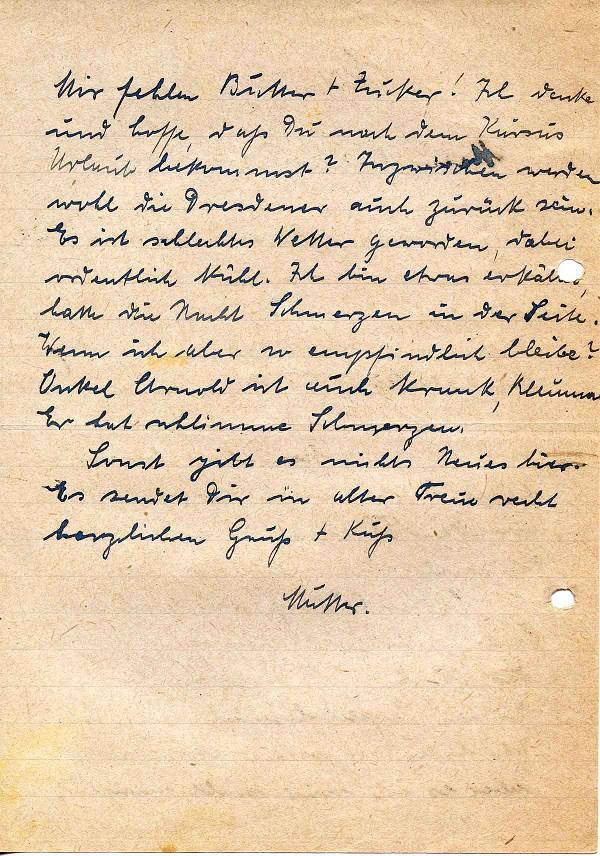 Mir fehlen Butter + Zucker! Ich denke
und hoffe, daß Du nach dem Kursus
Urlaub bekommst? Inzwischen werden
wohl die Dresdener auch zurück sein.
Es ist schlechtes Wetter geworden, dabei
ordentlich kühl. Ich bin etwas erkältet,
hatte die Nacht Schmerzen in der Seite.
Wenn ich aber so empfindlich bleibe?
Onkel Arnold ist auch krank, Rheuma
Er hat schlimme Schmerzen.
Sonst gibt es nichts Neues hier.
Es sendet Dir in alter Treue recht
herzlichen Gruß + Kuß
Mutter.